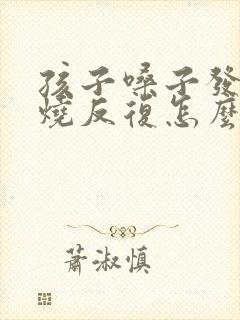 孩子嗓子發
燒反復怎麼
蕭淑慎